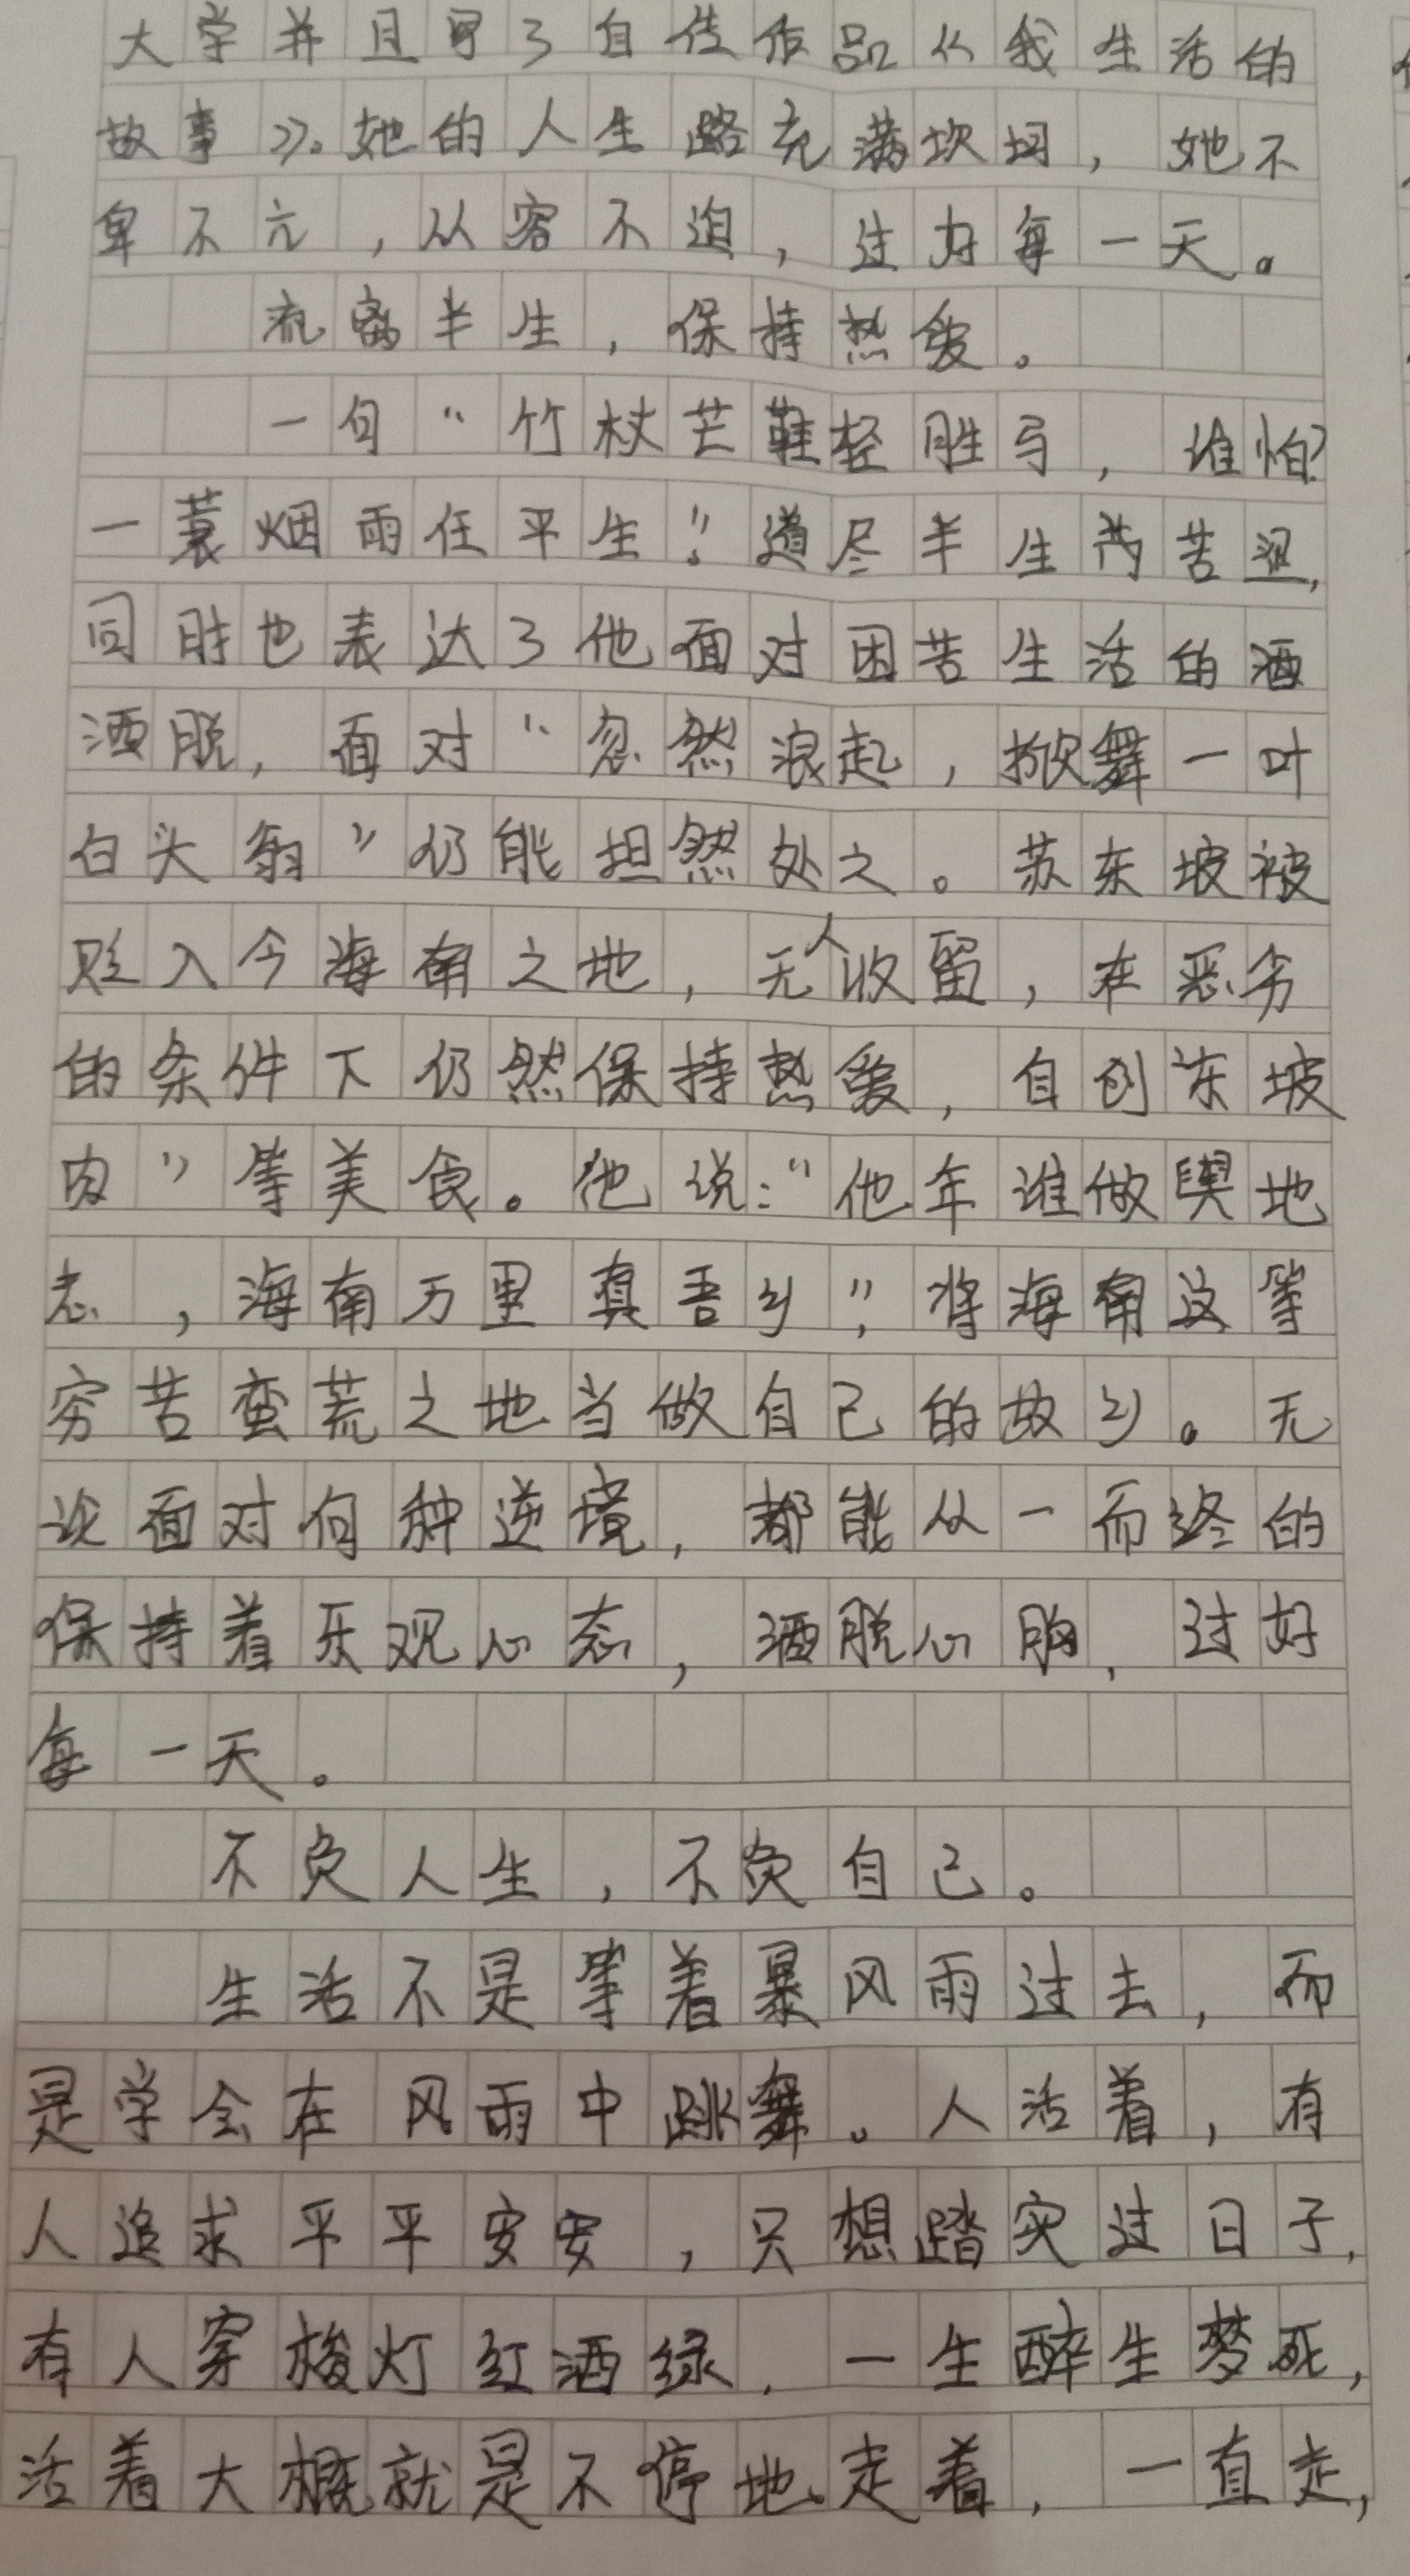 大学并且写了自传作品《我生活的
故事》。她的人生路充满坎坷，她不
卑不亢，从容不迫，过好每一天。
流离半生，保持热爱。
一句“竹杖芒鞋轻胜马，谁怕？
一蓑烟雨任平生！”道尽半生苦迢，
同时也表达了他面对困苦生活的洒
洒脱，面对“忽然浪起，掀舞一叶
白头翁”仍能坦然处之。苏东坡被
贬入今海南之地，无人收留，在恶劣
的条件下仍然保持热爱，自创东坡
肉”等美食。他说：“他年谁做舆地
志，海南万里真吾乡”，将海南这等
穷苦蛮荒之地当做自己的故乡。无
论面对何种逆境，都能从一而终的
保持着乐观心态，洒脱心胸，过好
每一天。
不负人生，不负自己。
生活不是等着暴风雨过去，而
是学会在风雨中跳舞。人活着，有
人追求平平安安，只想踏实过日子，
有人穿梭灯红酒绿，一生醉生梦死，
活着大概就是不停地走着，一直走，